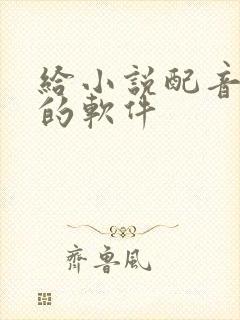 給小説配音
的軟件
齊魯風